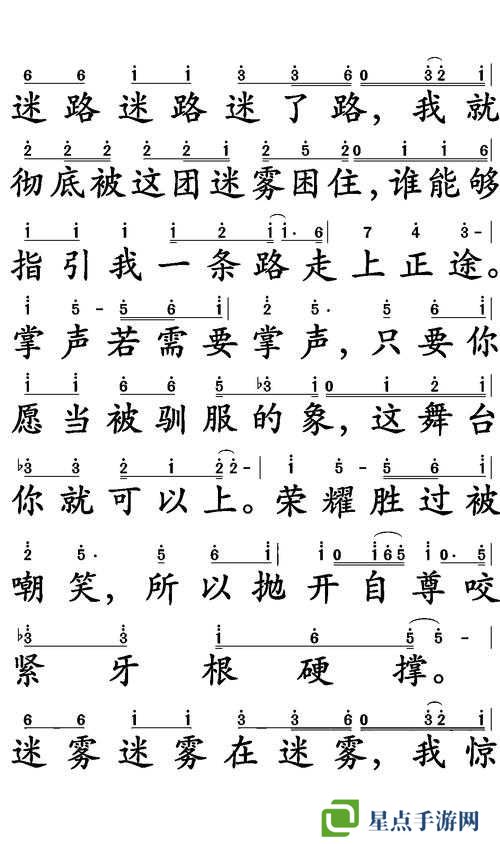 6 6 1 1 3 3 6 0 3 2 1
迷路迷路迷了路，我就
2 2 2 2 2 1 2 5 2 0 1 1 6
彻底被这团迷雾困住，谁能够
1 1 1 1 2 1 1· 6 7 4 3 -
指引我一条路走上正途。
1 5 - 5 6 1 2 5· 5 6 1
掌声若需要掌声，只要你
1 1 6 6 5 b3 1 0 1 2 1
愿当被驯服的象，这舞台
b3 3 2 1 2 2 - 1 5 - 5 6 1
你就可以上。荣耀胜过被
2 5· 5 6 1 1 0 1 6 5 1 0· 5
嘲笑，所以抛开自尊咬
b3 3 1 6 5 5 -
紧牙根硬撑。
6 6 1 1 3 3 6 0 3 2 1
迷雾迷雾在迷雾，我惊
星点手游网